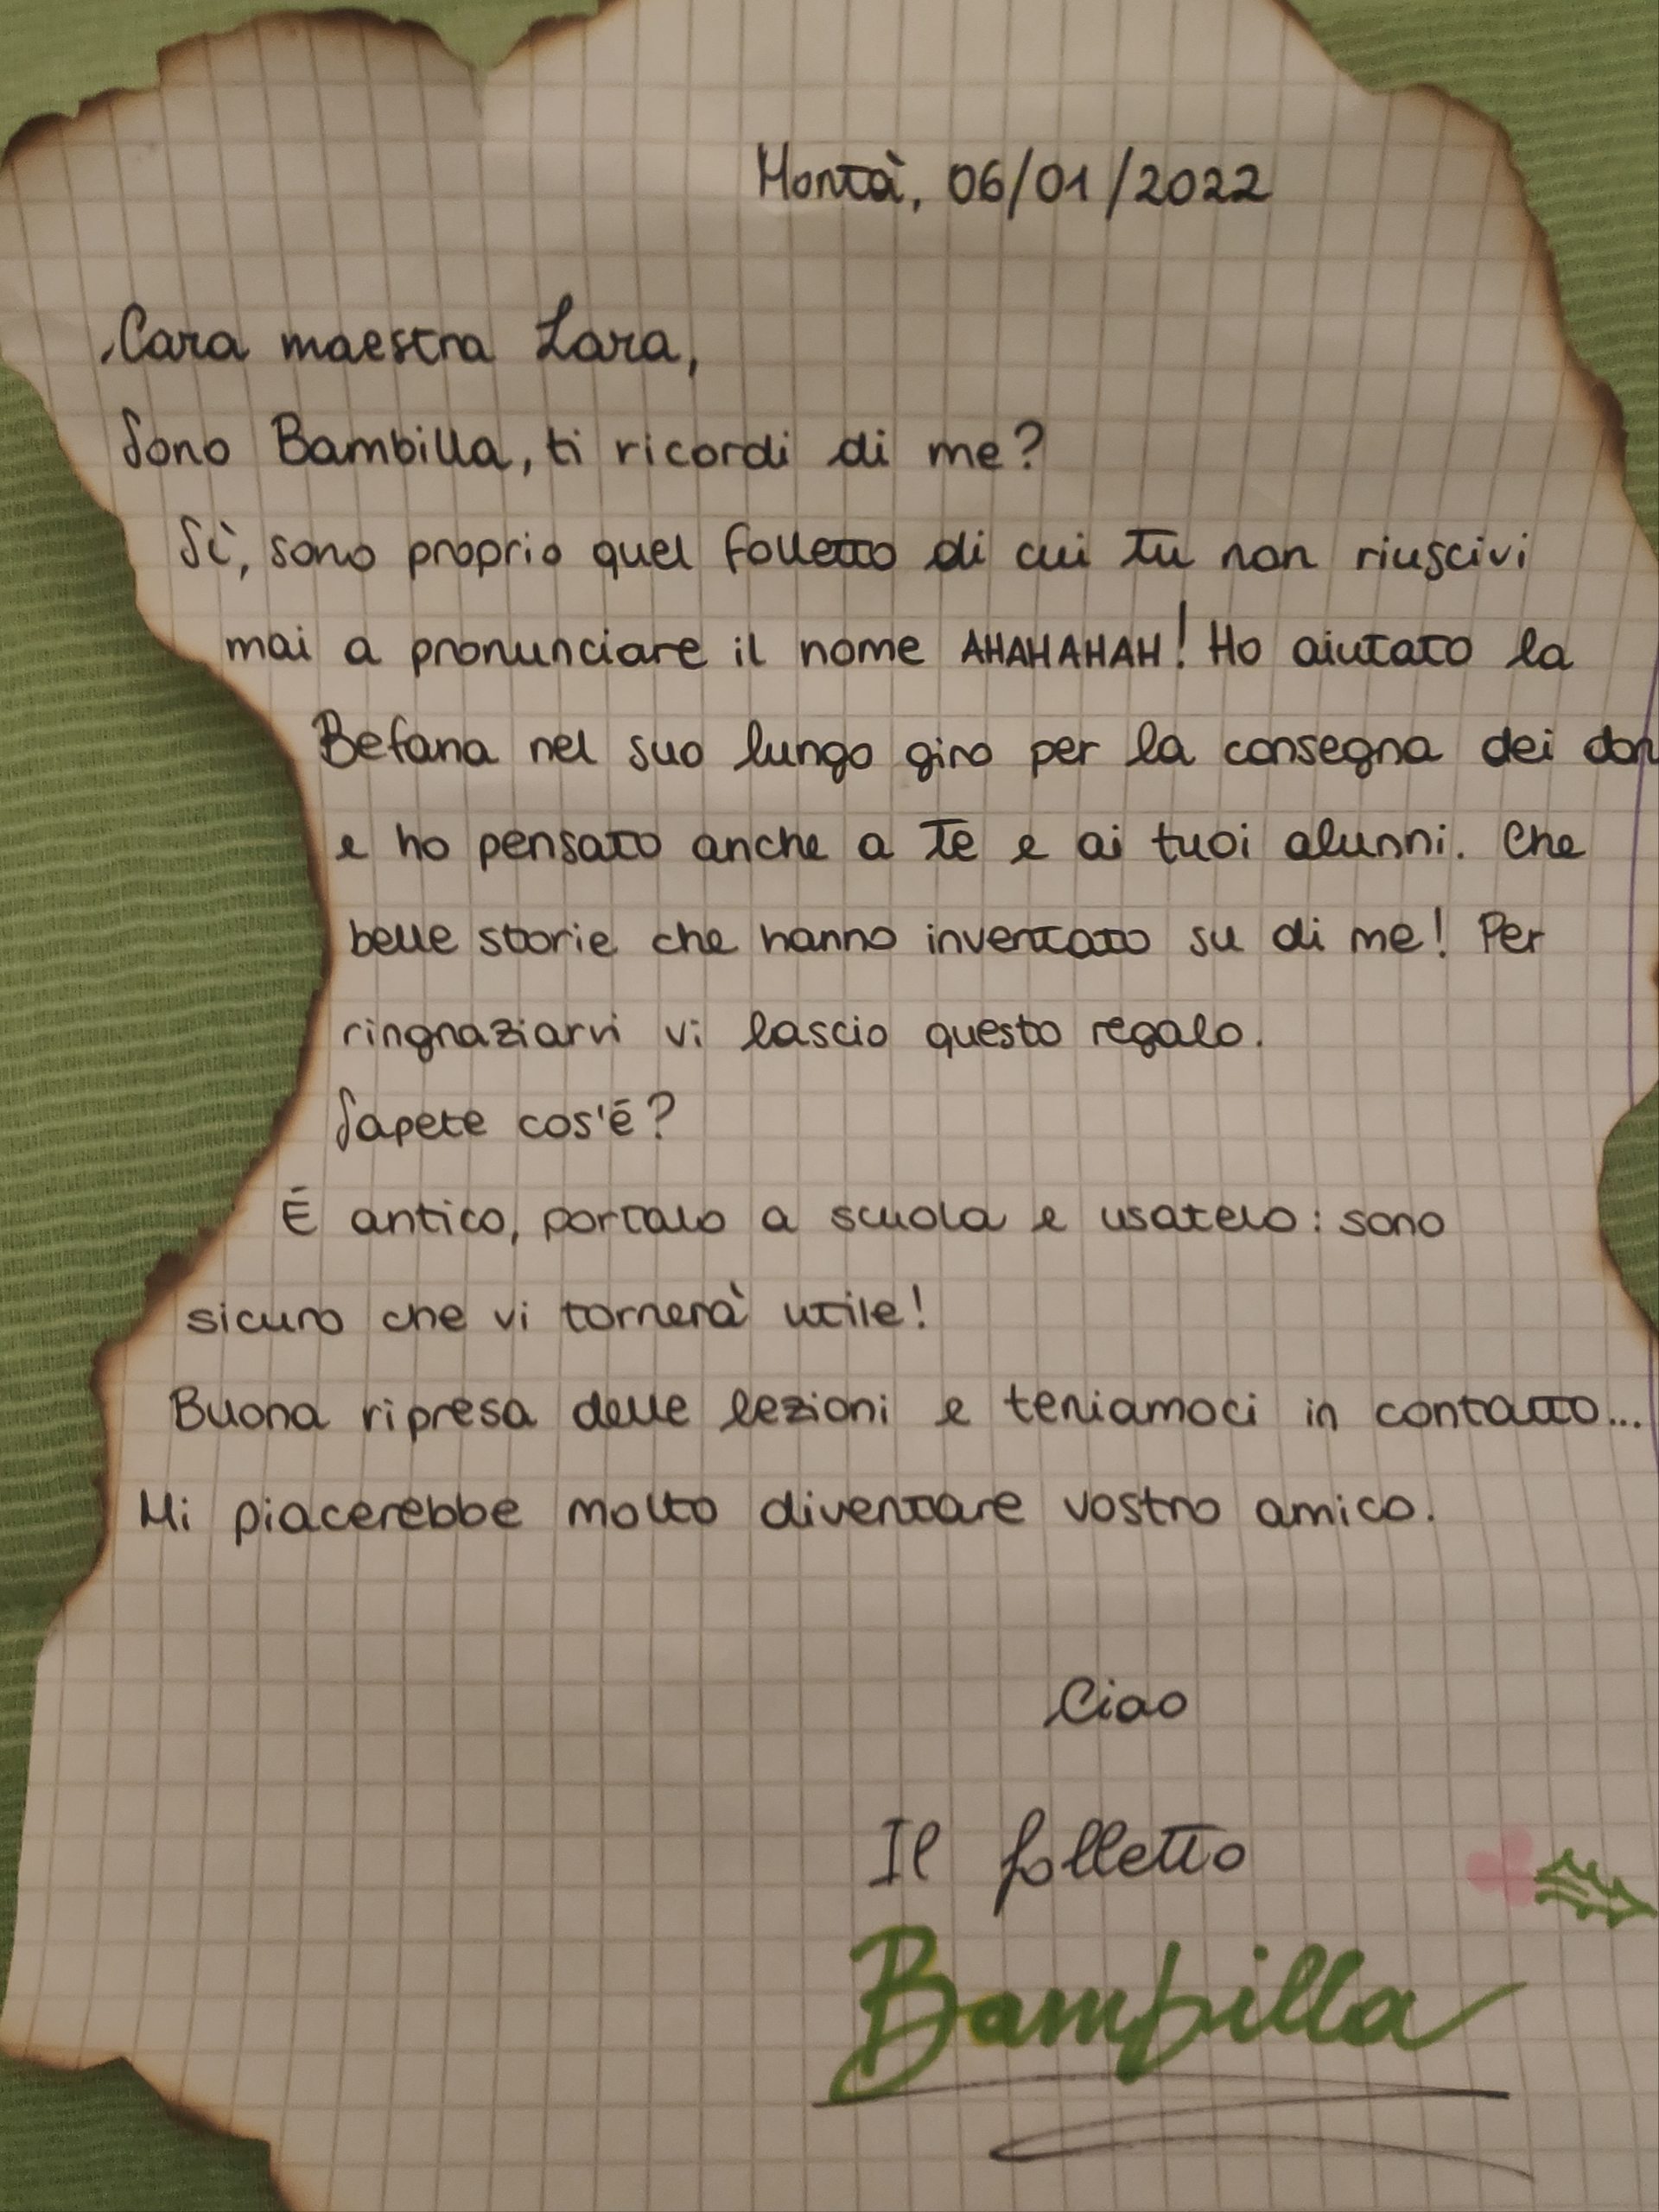 Montà, 06/01/2022
Cara maestra Lara,
Sono Bambilla, ti ricordi di me?
Sì, sono proprio quel folletto di cui tu non riuscivi
mai a pronunciare il nome AHAHAHAH! Ho aiutato la
Befana nel suo lungo giro per la consegna dei don
e ho pensato anche a te e ai tuoi alunni. Che
belle storie che hanno inventato su di me! Per
ringnaziarvi vi lascio questo regalo.
Sapete cos'é?
É antico, portalo a scuola e usatelo: sono
sicuro che vi tornerà utile!
Buona ripresa delle lezioni e teniamoci in contatto...
Mi piacerebbe molto diventare vostro amico.
Ciao
Il folletto
Bambilla